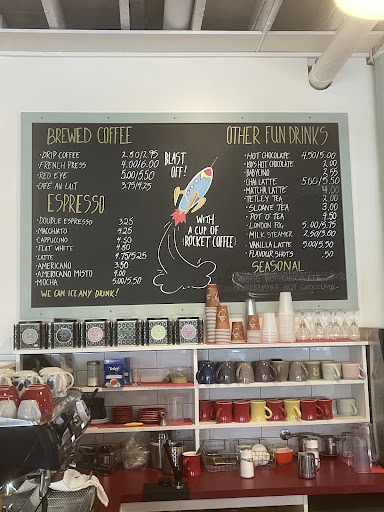 BREWED COFFEE
· DRIP COFFEE 2.50/2.95
· FRENCH PRESS 4.00/6.00
· RED EYE 5.00/5.50
· CAFE AU LAIT 3.75/4.25
ESPRESSO
· DOUBLE ESPRESSO 3.25
· MACCHIATO 4.25
· CAPPUCCINO 4.50
· FLAT WHITE 4.50
· LATTE 4.75/5.25
· AMERICANO 3.50
· AMERICANO MISTO 4.00
· MOCHA 5.00/5.50
WE CAN ICE ANY DRINK!
BLAST
OFF!
WITH
A CUP OF
ROCKET COFFEE
OTHER FUN DRINKS
· HOT CHOCOLATE 4.50/5.00
· KID'S HOT CHOCOLATE 2.00
· BABYCINO 2.55
· CHAI LATTE 5.00/5.50
· MATCHA LATTE 4.00
· TETLEY TEA 2.00
· SLOANE TEA 3.00
· POT O' TEA 4.50
· LONDON FOG 5.00/5.75
· MILK STEAMER 2.50/3.50
· VANILLA LATTE 5.00/5.50
· FLAVOUR SHOTS .50
SEASONAL
HOT CHOCOLATE
Tetley